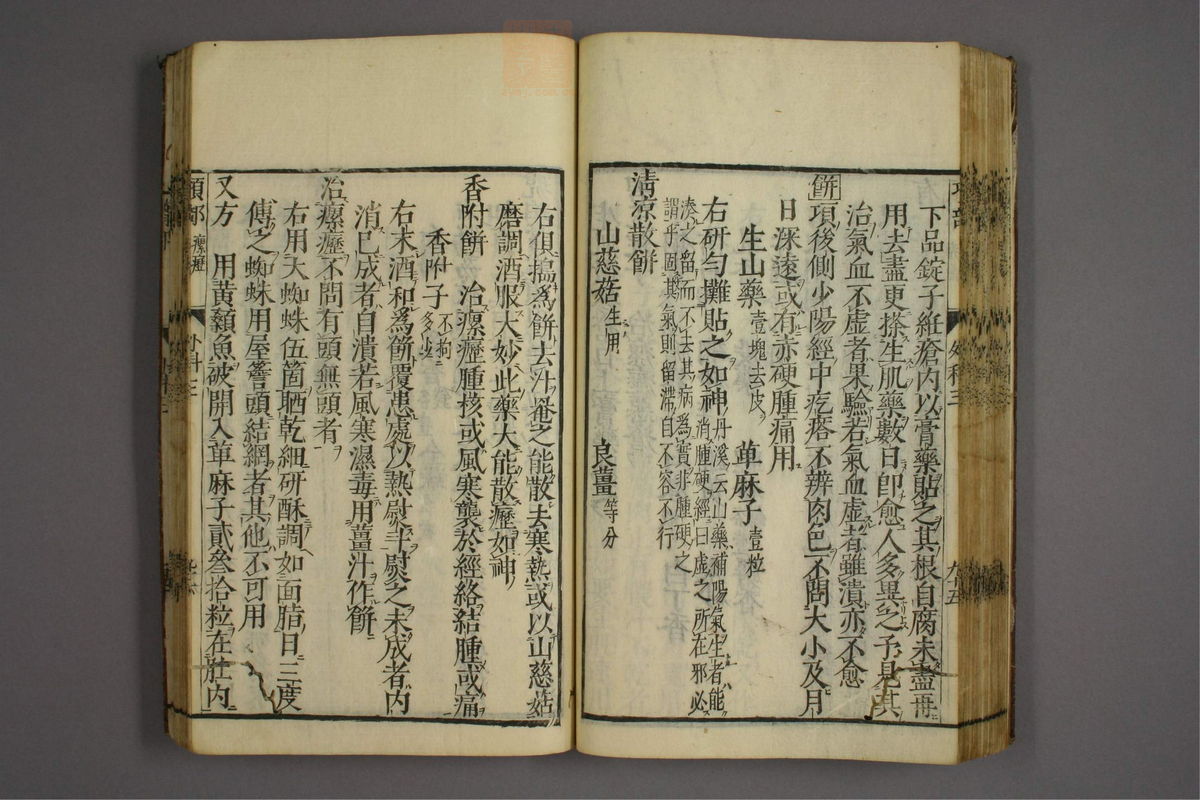 下品錠子紝瘡内以膏藥貼之其根自腐未盡再
用去盡更搽生肌藥數日即愈人多畏之予見其
治氣血不虚者果驗若氣血虚者雖潰亦不愈
餅項後側少陽經中疙瘩不辨肉色不問大小及月
日深遠或有赤硬腫痛用
生山藥壹塊去皮 萆麻子壹粒
右研匀攤貼之如神丹溪云山藥補陽氣生者能
消腫硬經曰虚之所在邪必
湊之留而不去其病爲實非腫硬之
謂乎固其氣則留滯自不容不行
淸凉散餅
山慈菇生用 良薑等分
右俱搗爲餅去汁菴之能散去寒熱或以山慈菇
磨調酒服大妙此藥大能散癧如神
香附餅 治瘰癧腫核或風寒襲於經絡結腫或痛
香附子不拘多少
右末酒和爲餅覆患處以熱尉斗熨之未成者内
消已成者自潰若風寒濕毒用薑汁作餅
治瘰癧不問有頭無頭者
右用大蜘蛛伍箇晒乾細研酥調如面脂日三度
傅之蜘蛛用屋簷頭結網者其他不可用
又方 用黄顙魚破開入萆麻子貳叁拾粒在肚内